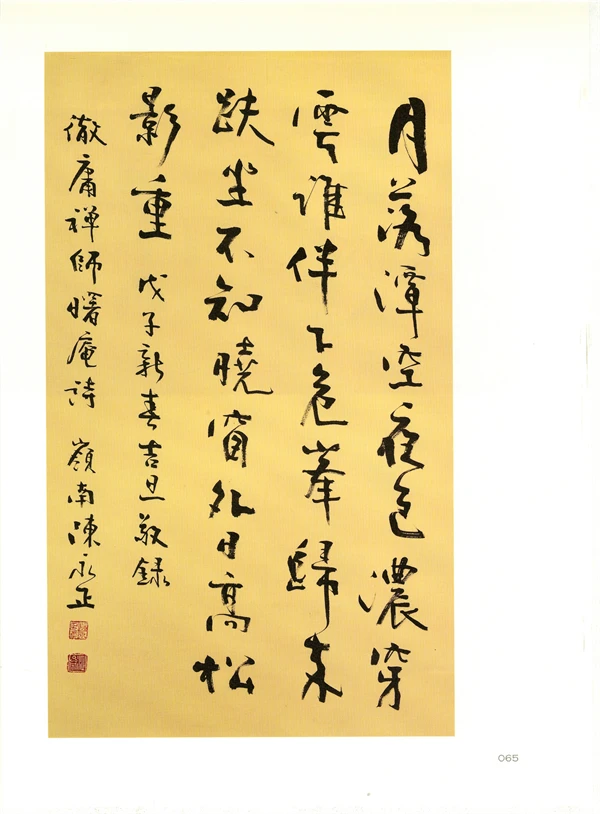 月落潭空夜色濃穿
雲誰伴下危峯歸來
趺坐不知曉窗外日高松
影重 戊子新春吉旦敬録
徹庸禅師曙庵詩 嶺南陳永正
065